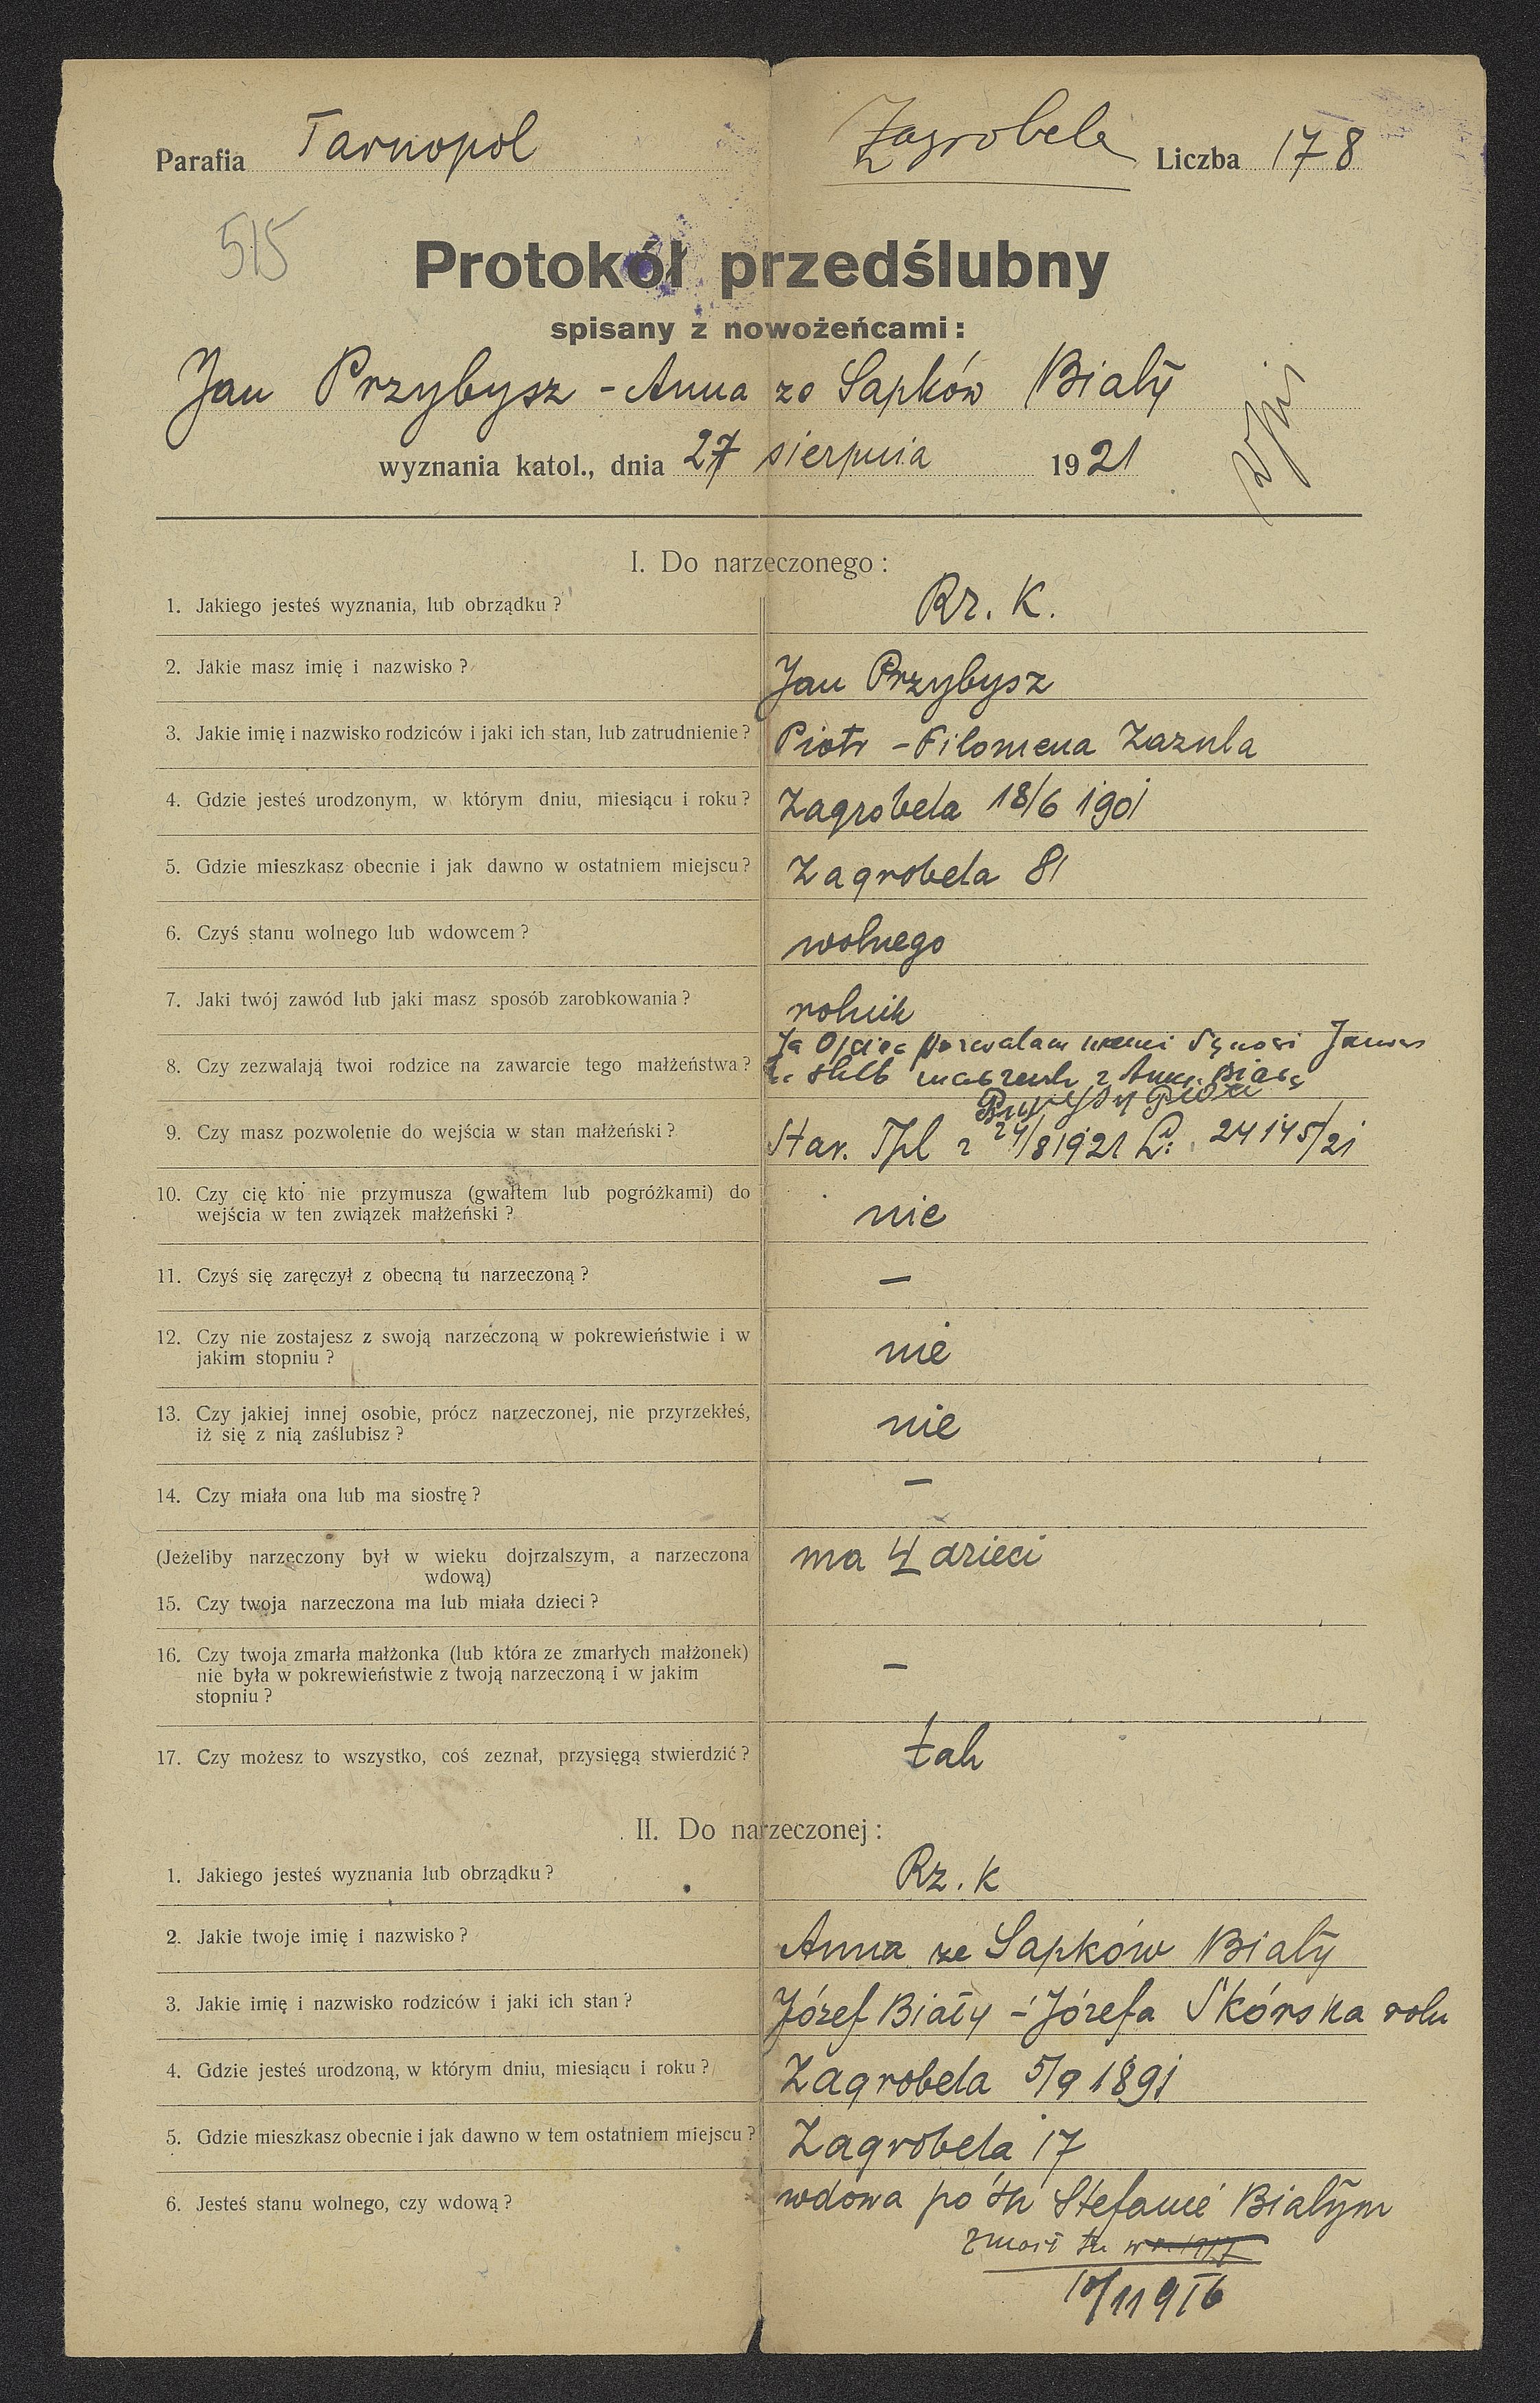 Parafia Tarnopol Zagrobela Liczba 178
515
Protokół przedślubny
spisany z nowożeńcami:
Jan Przybysz - Anna ze Sapków Biały
wyznania katol., dnia 27 sierpnia 1921
I. Do narzeczonego:
1. Jakiego jesteś wyznania, lub obrządku? Rz. K.
2. Jakie masz imię i nazwisko? Jan Przybysz
3. Jakie imię i nazwisko rodziców i jaki ich stan, lub zatrudnienie? Piotr - Filomena Zazula
4. Gdzie jesteś urodzonym, w którym dniu, miesiącu i roku? Zagrobela 18/6 1901
5. Gdzie mieszkasz obecnie i jak dawno w ostatniem miejscu? Zagrobela 81
6. Czyś stanu wolnego lub wdowcem? wolnego
7. Jaki twój zawód lub jaki masz sposób zarobkowania? rolnik
Ja Ojciec pozwalam memu Synowi
8. Czy zezwalają twoi rodzice na zawarcie tego małżeństwa? ślub z
9. Czy masz pozwolenie do wejścia w stan małżeński? Star. Tpl z 24/8 1921 L: 24145/21
10. Czy cię kto nie przymusza (gwałtem lub pogróżkami) do
wejścia w ten związek małżeński? nie
11. Czyś się zaręczył z obecną tu narzeczoną? –
12. Czy nie zostajesz z swoją narzeczoną w pokrewieństwie i w
jakim stopniu? nie
13. Czy jakiej innej osobie, prócz narzeczonej, nie przyrzekłeś,
iż się z nią zaślubisz? nie
14. Czy miała ona lub ma siostrę? –
(Jeżeliby narzęczony był w wieku dojrzalszym, a narzeczona ma 4 dzieci
wdową)
15. Czy twoja narzeczona ma lub miała dzieci?
16. Czy twoja zmarła małżonka (lub która ze zmarłych małżonek)
nie była w pokrewieństwie z twoją narzeczoną i w jakim –
stopniu?
17. Czy możesz to wszystko, coś zeznał, przysięgą stwierdzić? tak
II. Do narzeczonej:
1. Jakiego jesteś wyznania lub obrządku? Rz. k
2. Jakie twoje imię i nazwisko? Anna ze Sapków Biały
3. Jakie imię i nazwisko rodziców i jaki ich stan? Józef Biały - Józefa Skórska roln
4. Gdzie jesteś urodzoną, w którym dniu, miesiącu i roku? Zagrobela 5/9 1891
5. Gdzie mieszkasz obecnie i jak dawno w tem ostatniem miejscu? Zagrobela 17
6. Jesteś stanu wolnego, czy wdową? wdowa po śp Stefanie Białym
zmarł tu w r. 1917
10/11 916